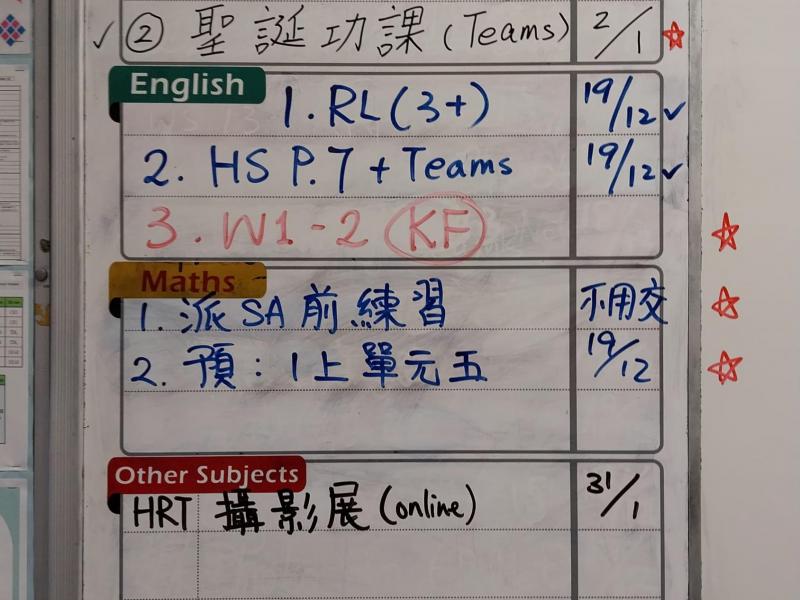 ✓ ② 聖誕功課 (Teams) 2/1 ☆
English
1. RL (3+) 19/12 ✓
2. HS P.7 + Teams 19/12 ✓
3. W1-2 KF ☆
Maths
1. 派SA前練習 不用交 ☆
2. 預：1上單元五 19/12 ☆
Other Subjects
HRT 攝影展 (online) 31/1